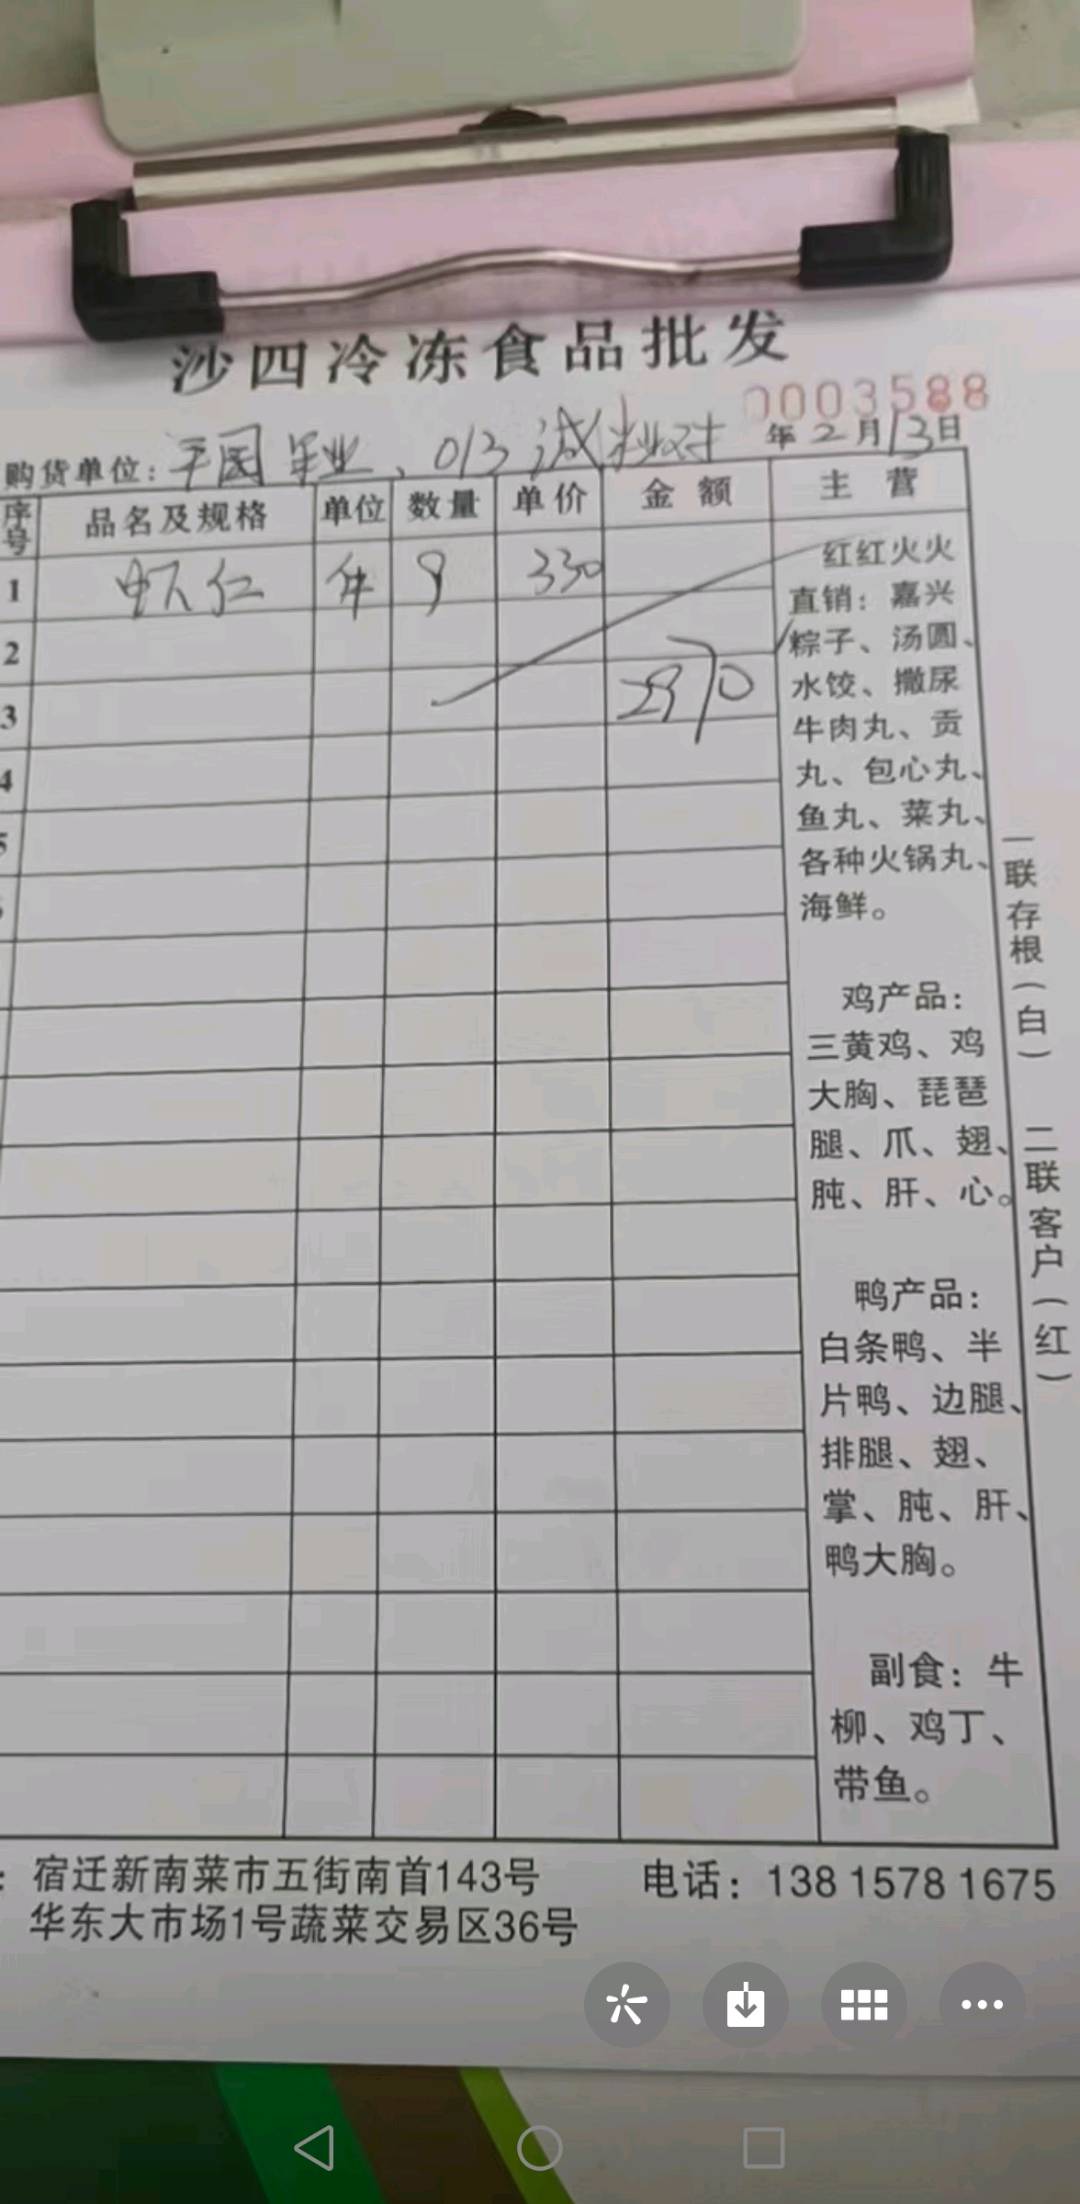 沙四冷冻食品批发
0003588
购货单位: 平园 年2月13日
序号 品名及规格 单位 数量 单价 金额 主营
1 虾仁 件 9 330
2
3 2970
4
5
红红火火
直销：嘉兴
粽子、汤圆、
水饺、撒尿
牛肉丸、贡
丸、包心丸、
鱼丸、菜丸、
各种火锅丸、
海鲜。
鸡产品：
三黄鸡、鸡
大胸、琵琶
腿、爪、翅、
肫、肝、心。
鸭产品：
白条鸭、半
片鸭、边腿、
排腿、翅、
掌、肫、肝、
鸭大胸。
副食：牛
柳、鸡丁、
带鱼。
一联存根(白) 二联客户(红)
：宿迁新南菜市五街南首143号 电话：138 1578 1675
华东大市场1号蔬菜交易区36号